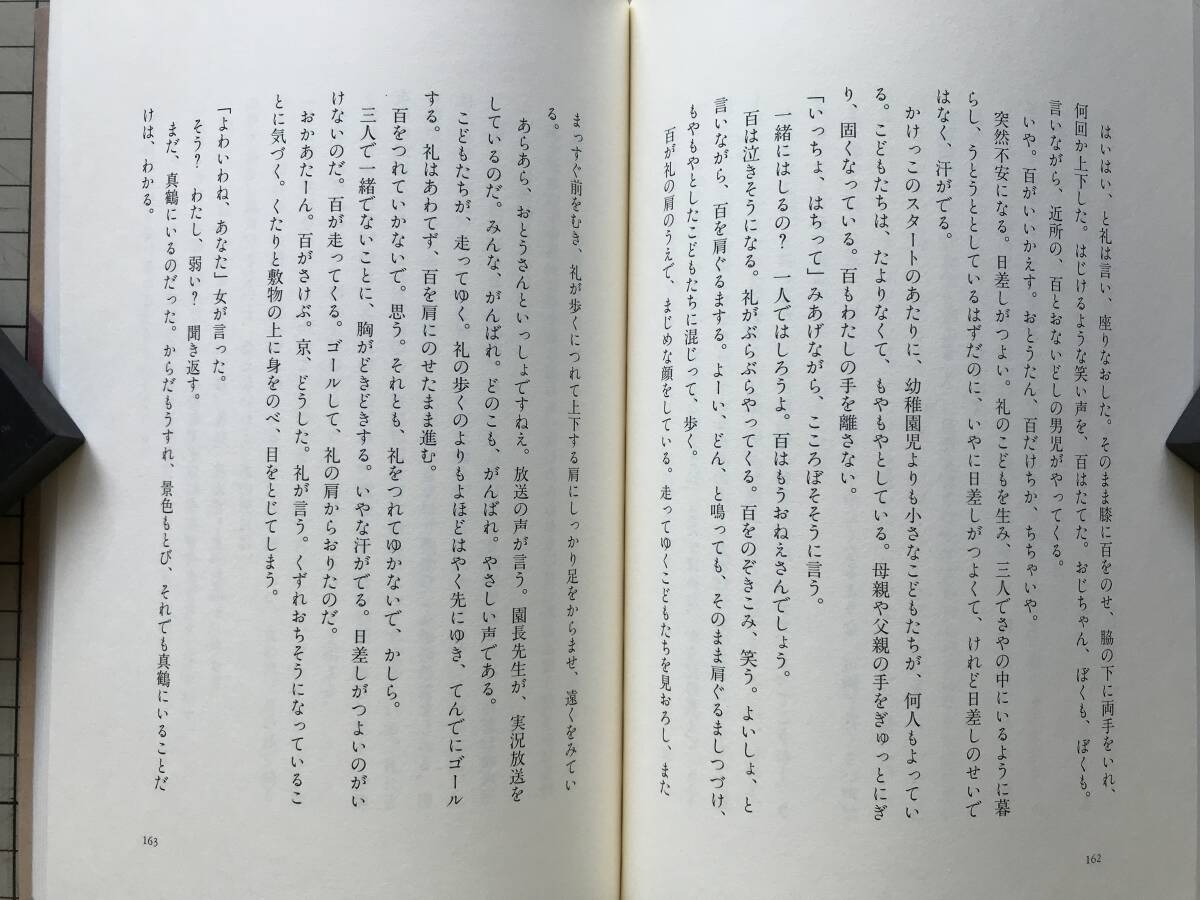 はいはい、と礼は言い、座りなおした。そのまま膝に百をのせ、脇の下に両手をいれ、
何回か上下した。はじけるような笑い声を、百はたてた。おじちゃん、ぼくも、ぼくも。
言いながら、近所の、百とおないどしの男児がやってくる。
いや。百がいいかえす。おとうたん、百だけちか、ちちゃいや。
突然不安になる。日差しがつよい。礼のこどもを生み、三人でさやの中にいるように暮
らし、うとうととしているはずだのに、いやに日差しがつよくて、けれど日差しのせいで
はなく、汗がでる。
かけっこのスタートのあたりに、幼稚園児よりも小さなこどもたちが、何人もよってい
る。こどもたちは、たよりなくて、もやもやとしている。母親や父親の手をぎゅっとにぎ
り、固くなっている。百もわたしの手を離さない。
「いっちょ、はちって」みあげながら、こころぼそそうに言う。
一緒にはしるの？　一人ではしろうよ。百はもうおねえさんでしょう。
百は泣きそうになる。礼がぶらぶらやってくる。百をのぞきこみ、笑う。よいしょ、と
言いながら、百を肩ぐるまする。よーい、どん、と鳴っても、そのまま肩ぐるましつづけ、
もやもやとしたこどもたちに混じって、歩く。
百が礼の肩のうえで、まじめな顔をしている。走ってゆくこどもたちを見おろし、また
162
まっすぐ前をむき、礼が歩くにつれて上下する肩にしっかり足をからませ、遠くをみてい
る。
あらあら、おとうさんといっしょですねえ。放送の声が言う。園長先生が、実況放送を
しているのだ。みんな、がんばれ。どのこも、がんばれ。やさしい声である。
こどもたちが、走ってゆく。礼の歩くのよりもよほどはやく先にゆき、てんでにゴール
する。礼はあわてず、百を肩にのせたまま進む。
百をつれていかないで。思う。それとも、礼をつれてゆかないで、かしら。
三人で一緒でないことに、胸がどきどきする。いやな汗がでる。日差しがつよいのがい
けないのだ。百が走ってくる。ゴールして、礼の肩からおりたのだ。
おかあたーん。百がさけぶ。京、どうした。礼が言う。くずれおちそうになっているこ
とに気づく。くたりと敷物の上に身をのべ、目をとじてしまう。
「よわいわね、あなた」女が言った。
そう？　わたし、弱い？　聞き返す。
まだ、真鶴にいるのだった。からだもうすれ、景色もとび、それでも真鶴にいることだ
けは、わかる。
163